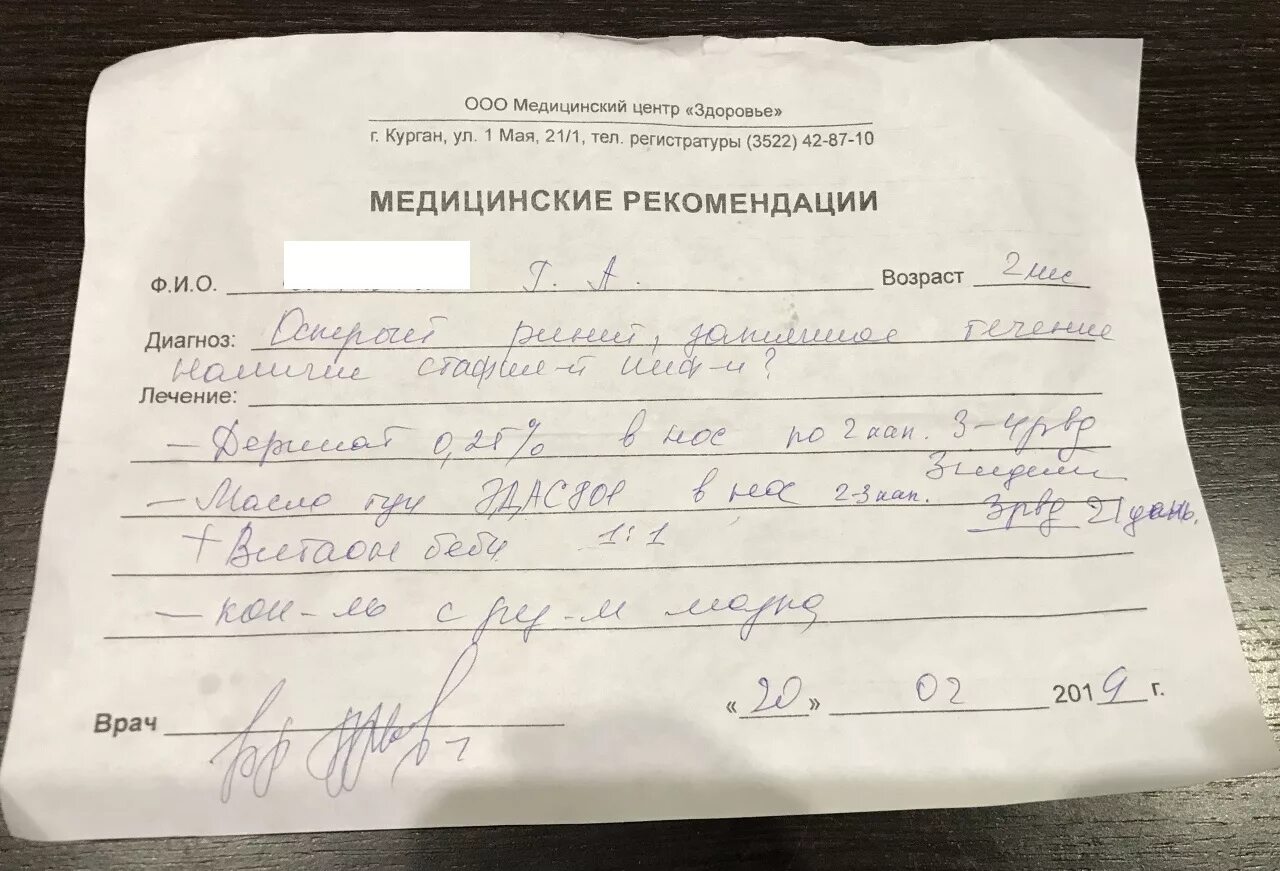 ООО Медицинский центр «Здоровье»
г. Курган, ул. 1 Мая, 21/1, тел. регистратуры (3522) 42-87-10
МЕДИЦИНСКИЕ РЕКОМЕНДАЦИИ
Ф.И.О. Г. А. Возраст 2 мес
Диагноз: Острый ринит, затяжное течение
наличие стафил-й инф-и?
Лечение:
– Деринат 0,25% в нос по 2 кап. 3-4 рвд
3 недели
– Масло туи ЭДАС 801 в нос 2-3 кап. 3 рвд 21 день.
+ Витаон беби 1:1
– кон-ль с
Врач «20» 02 2019 г.